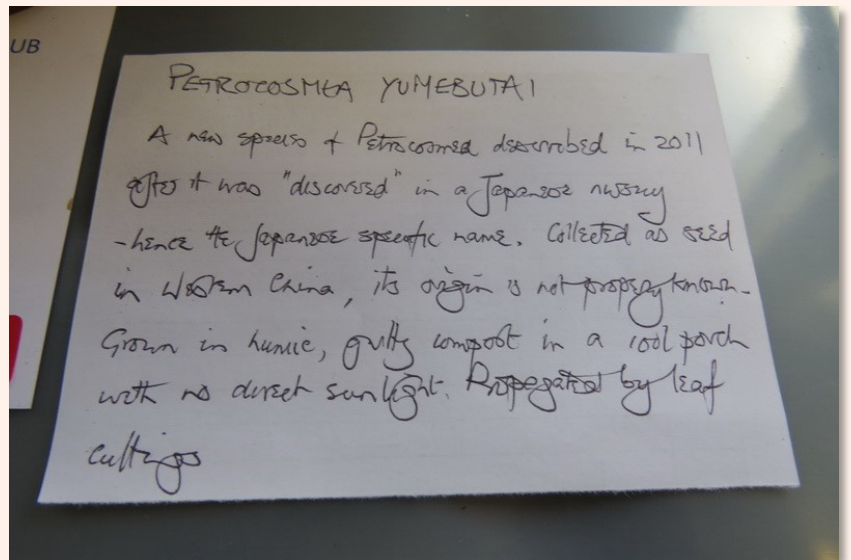 UB
PETROCOSMEA YUMEBUTAI
A new species of Petrocosmea described in 2011
after it was "discovered" in a Japanese nursery
- hence the Japanese specific name. Collected as seed
in Western China, its origin is not properly known.
Grown in humic, gritty compost in a cool porch
with no direct sunlight. Propagated by leaf
cuttings